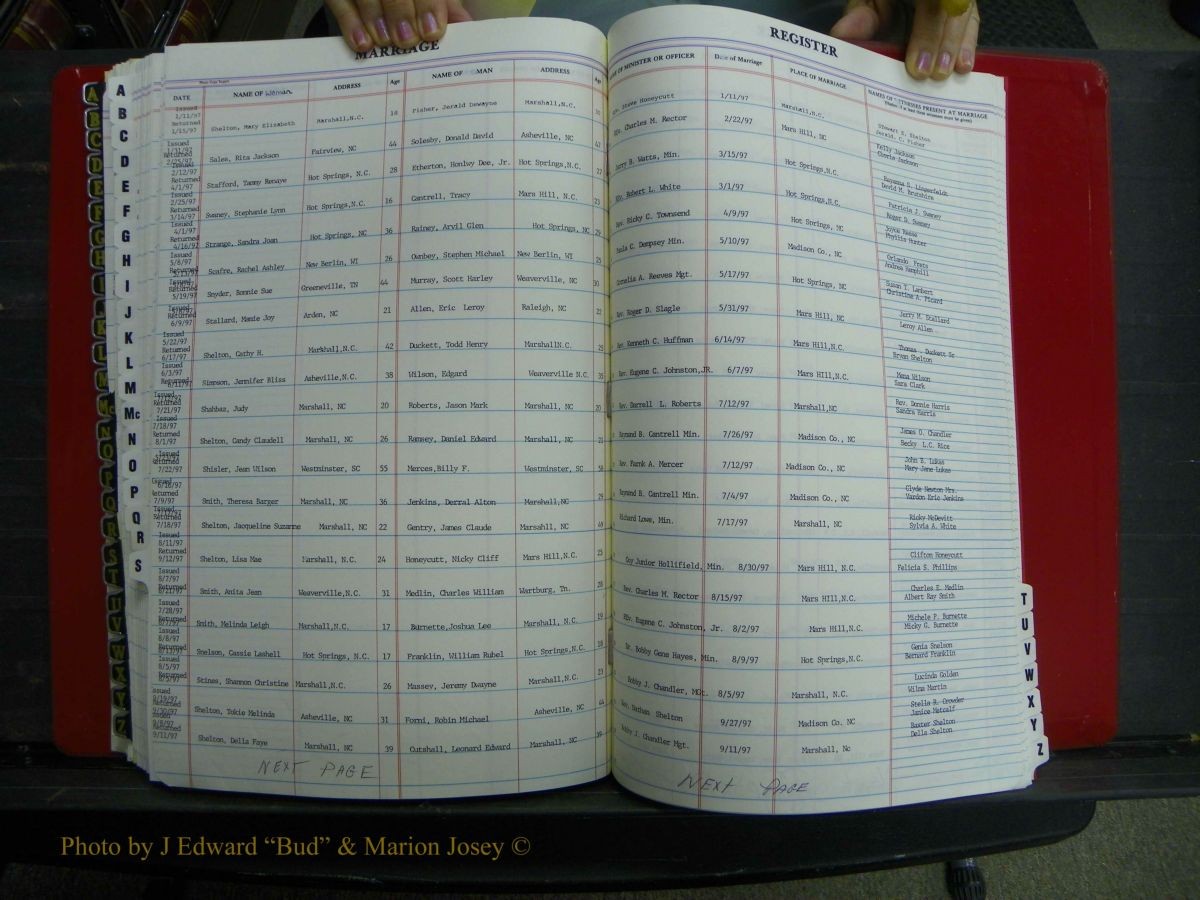 MARRIAGE
REGISTER
DATE NAME OF Woman ADDRESS Age NAME OF MAN ADDRESS Age
NAME OF MINISTER OR OFFICER Date of Marriage PLACE OF MARRIAGE NAMES OF WITNESSES PRESENT AT MARRIAGE
Issued 1/11/97 Returned 1/15/97 Shelton, Mary Elizabeth Marshall,N.C. 18 Fisher, Jerald Dewayne Marshall,N.C. Steve Honeycutt 1/11/97 Marshall,N.C. Stewart E. Shelton
Jerald, C. Fisher
Issued Returned Sales, Rita Jackson Fairview, NC 44 Solesby, Donald David Asheville, NC Charles M. Rector 2/22/97 Mars Hill, NC Kelly Jackson
Cherie Jackson
Issued 2/12/97 Returned 4/1/97 Stafford, Tammy Renaye Hot Springs, N.C. 28 Etherton, Honlwy Dee, Jr. Hot Springs,N.C. Jerry B. Watts, Min. 3/15/97 Hot Springs,N.C.
David M. Brutshire
Issued 2/25/97 Returned 3/14/97 Swaney, Stephanie Lynn Hot Springs,N.C. 16 Cantrell, Tracy Mars Hill, N.C. 23 Robert L. White 3/1/97 Hot Springs,N.C. Patricia J. Swaney
Roger D. Swaney
Issued 4/1/97 Returned 4/16/97 Strange, Sandra Joan Hot Springs, NC 36 Rainey, Arvil Glen Hot Springs, NC 29 Rev. Ricky C. Townsend 4/9/97 Hot Springs, NC Joyce Reese
Phyllis Hunter
Issued 5/6/97 Returned Scafre, Rachel Ashley New Berlin, WI 26 Ownbey, Stephen Michael New Berlin, WI 25 C. Dempsey Min. 5/10/97 Madison Co., NC Orlando Prats
Andrea Hamphill
Returned 5/19/97 Snyder, Bonnie Sue Greeneville, TN 44 Murray, Scott Harley Weaverville, NC 30 Cornelia A. Reeves Mgt. 5/17/97 Hot Springs, NC Susan T. Lambert
Christine A. Picard
Returned 6/9/97 Stallard, Mamie Joy Arden, NC 21 Allen, Eric Leroy Raleigh, NC 22 Rev. Roger D. Slagle 5/31/97 Mars Hill, NC Jerry M. Stallard
Leroy Allen
Issued 5/22/97 Returned 6/17/97 Shelton, Cathy H. Markhall,N.C. 42 Duckett, Todd Henry MarshallN.C. 25 Rev. Kenneth C. Huffman 6/14/97 Mars Hill,N.C. Thomas Duckett Sr
Bryan Shelton
Issued 6/3/97 Returned 6/11/97 Simpson, Jennifer Bliss Asheville,N.C. 38 Wilson, Edgard Weaverville N.C. 35 Rev. Eugene C. Johnston,JR. 6/7/97 Mars HIll,N.C. Mena Wilson
Sara Clark
Issued Returned 7/21/97 Shahbaz, Judy Marshall, NC 20 Roberts, Jason Mark Marshall, NC 20 Rev. Darrell L. Roberts 7/12/97 Marshall,NC Rev. Donnie Harris
Sandra Harris
Issued 7/18/97 Returned 8/1/97 Shelton, Candy Claudell Marshall, NC 26 Ramsey, Daniel Edward Marshall, NC 21 Raymand B. Cantrell Min. 7/26/97 Madison Co., NC James O. Chandler
Becky L.C. Rice
Issued Returned 7/22/97 Shisler, Jean Wilson Westminster, SC 55 Merces,Billy F. Westminster, SC 58 Rev. Farnk A. Mercer 7/12/97 Madison Co., NC John B. Lukas
Mary Jane Lukas
Issued 6/16/97 Returned 7/9/97 Smith, Theresa Barger Marshall, NC 36 Jenkins, Derral Alton Marshall,NC Raymand B. Cantrell Min. 7/4/97 Madison Co., NC Clyde Newton Mrs.
Vardon Eric Jenkins
Returned 7/18/97 Shelton, Jacqueline Suzanne Marshall, NC 22 Gentry, James Claude Marsahll, NC Richard Lowe, Min. 7/17/97 Marshall, NC Ricky McDevitt
Sylvia A. White
Issued 8/11/97 Returned 9/12/97 Shelton, Lisa Mae Marshall, N.C. 24 Honeycutt, Nicky Cliff Mars Hill,N.C. 25 Coy Junior Hollifield, Min. 8/30/97 Mars Hill, N.C. Clifton Honeycutt
Felicia S. Phillips
Issued 8/7/97 Returned Smith, Anita Jean Weaverville,N.C. 31 Medlin, Charles William Wartburg, Tn. 28 Rev. Charles M. Rector 8/15/97 Mars HIll,N.C. Charles E. Medlin
Albert Ray Smith
Issued 7/28/97 Returned Smith, Melinda Leigh Marshall,N.C. 17 Burnette,Joshua Lee Marshall, N.C. 19 REv. Eugene C. Johnston, Jr. 8/2/97 Mars Hill,N.C. Michele P. Burnette
Micky G. Burnette
Issued 8/8/97 Returned Snelson, Cassie Lashell Hot Springs, N.C. 17 Franklin, William Rubel Hot Springs,N.C. 18 Dr. Bobby Gene Hayes, Min. 8/9/97 Hot Springs,N.C. Genia Snelson
Bernard Franklin
Issued 8/5/97 Returned 8/5/97 Stines, Shannon Christine Marshall,N.C. 26 Massey, Jeremy Dwayne Marshall,N.C. 23 Bobby J. Chandler, MGt. 8/5/97 Marshall, N.C. Lucinda Golden
Wilma Martin
Issued Returned 9/30/97 Shelton, Tokie Melinda Asheville, NC 31 Forni, Robin Michael Asheville, NC 44 Rev. Nathan Shelton 9/27/97 Madison Co. NC Stella R. Crowder
Janice Metcalf
Issued 9/8/97 Returned 9/11/97 Shelton, Della Faye Marshall, NC 39 Cutshall, Leonard Edward Marshall, NC Bobby J. Chandler Mgt. 9/11/97 Marshall, Nc Baxter Shelton
Della Shelton
NEXT PAGE
NEXT PAGE
A
B
C
D
E
F
G
H
I
J
K
L
M
Mc
N
O
P
Q
R
S
T
U
V
W
X
Y
Z
Photo by J Edward “Bud” & Marion Josey ©